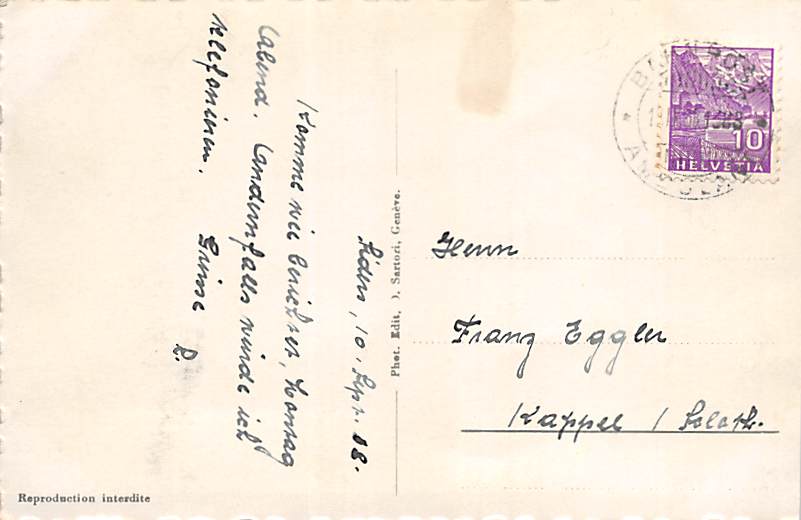 Siders, 10. Sept. 38.
Komme wie berichtet, Sonntag
Abend. Andernfalls würde ich
telefonieren.
Grüsse
Phot. Edit. J. Sartori, Genève.
Reproduction interdite
BAHNPOST
AMBULANT
10
HELVETIA
Herrn
Franz Eggler
Kappel / Soloth.